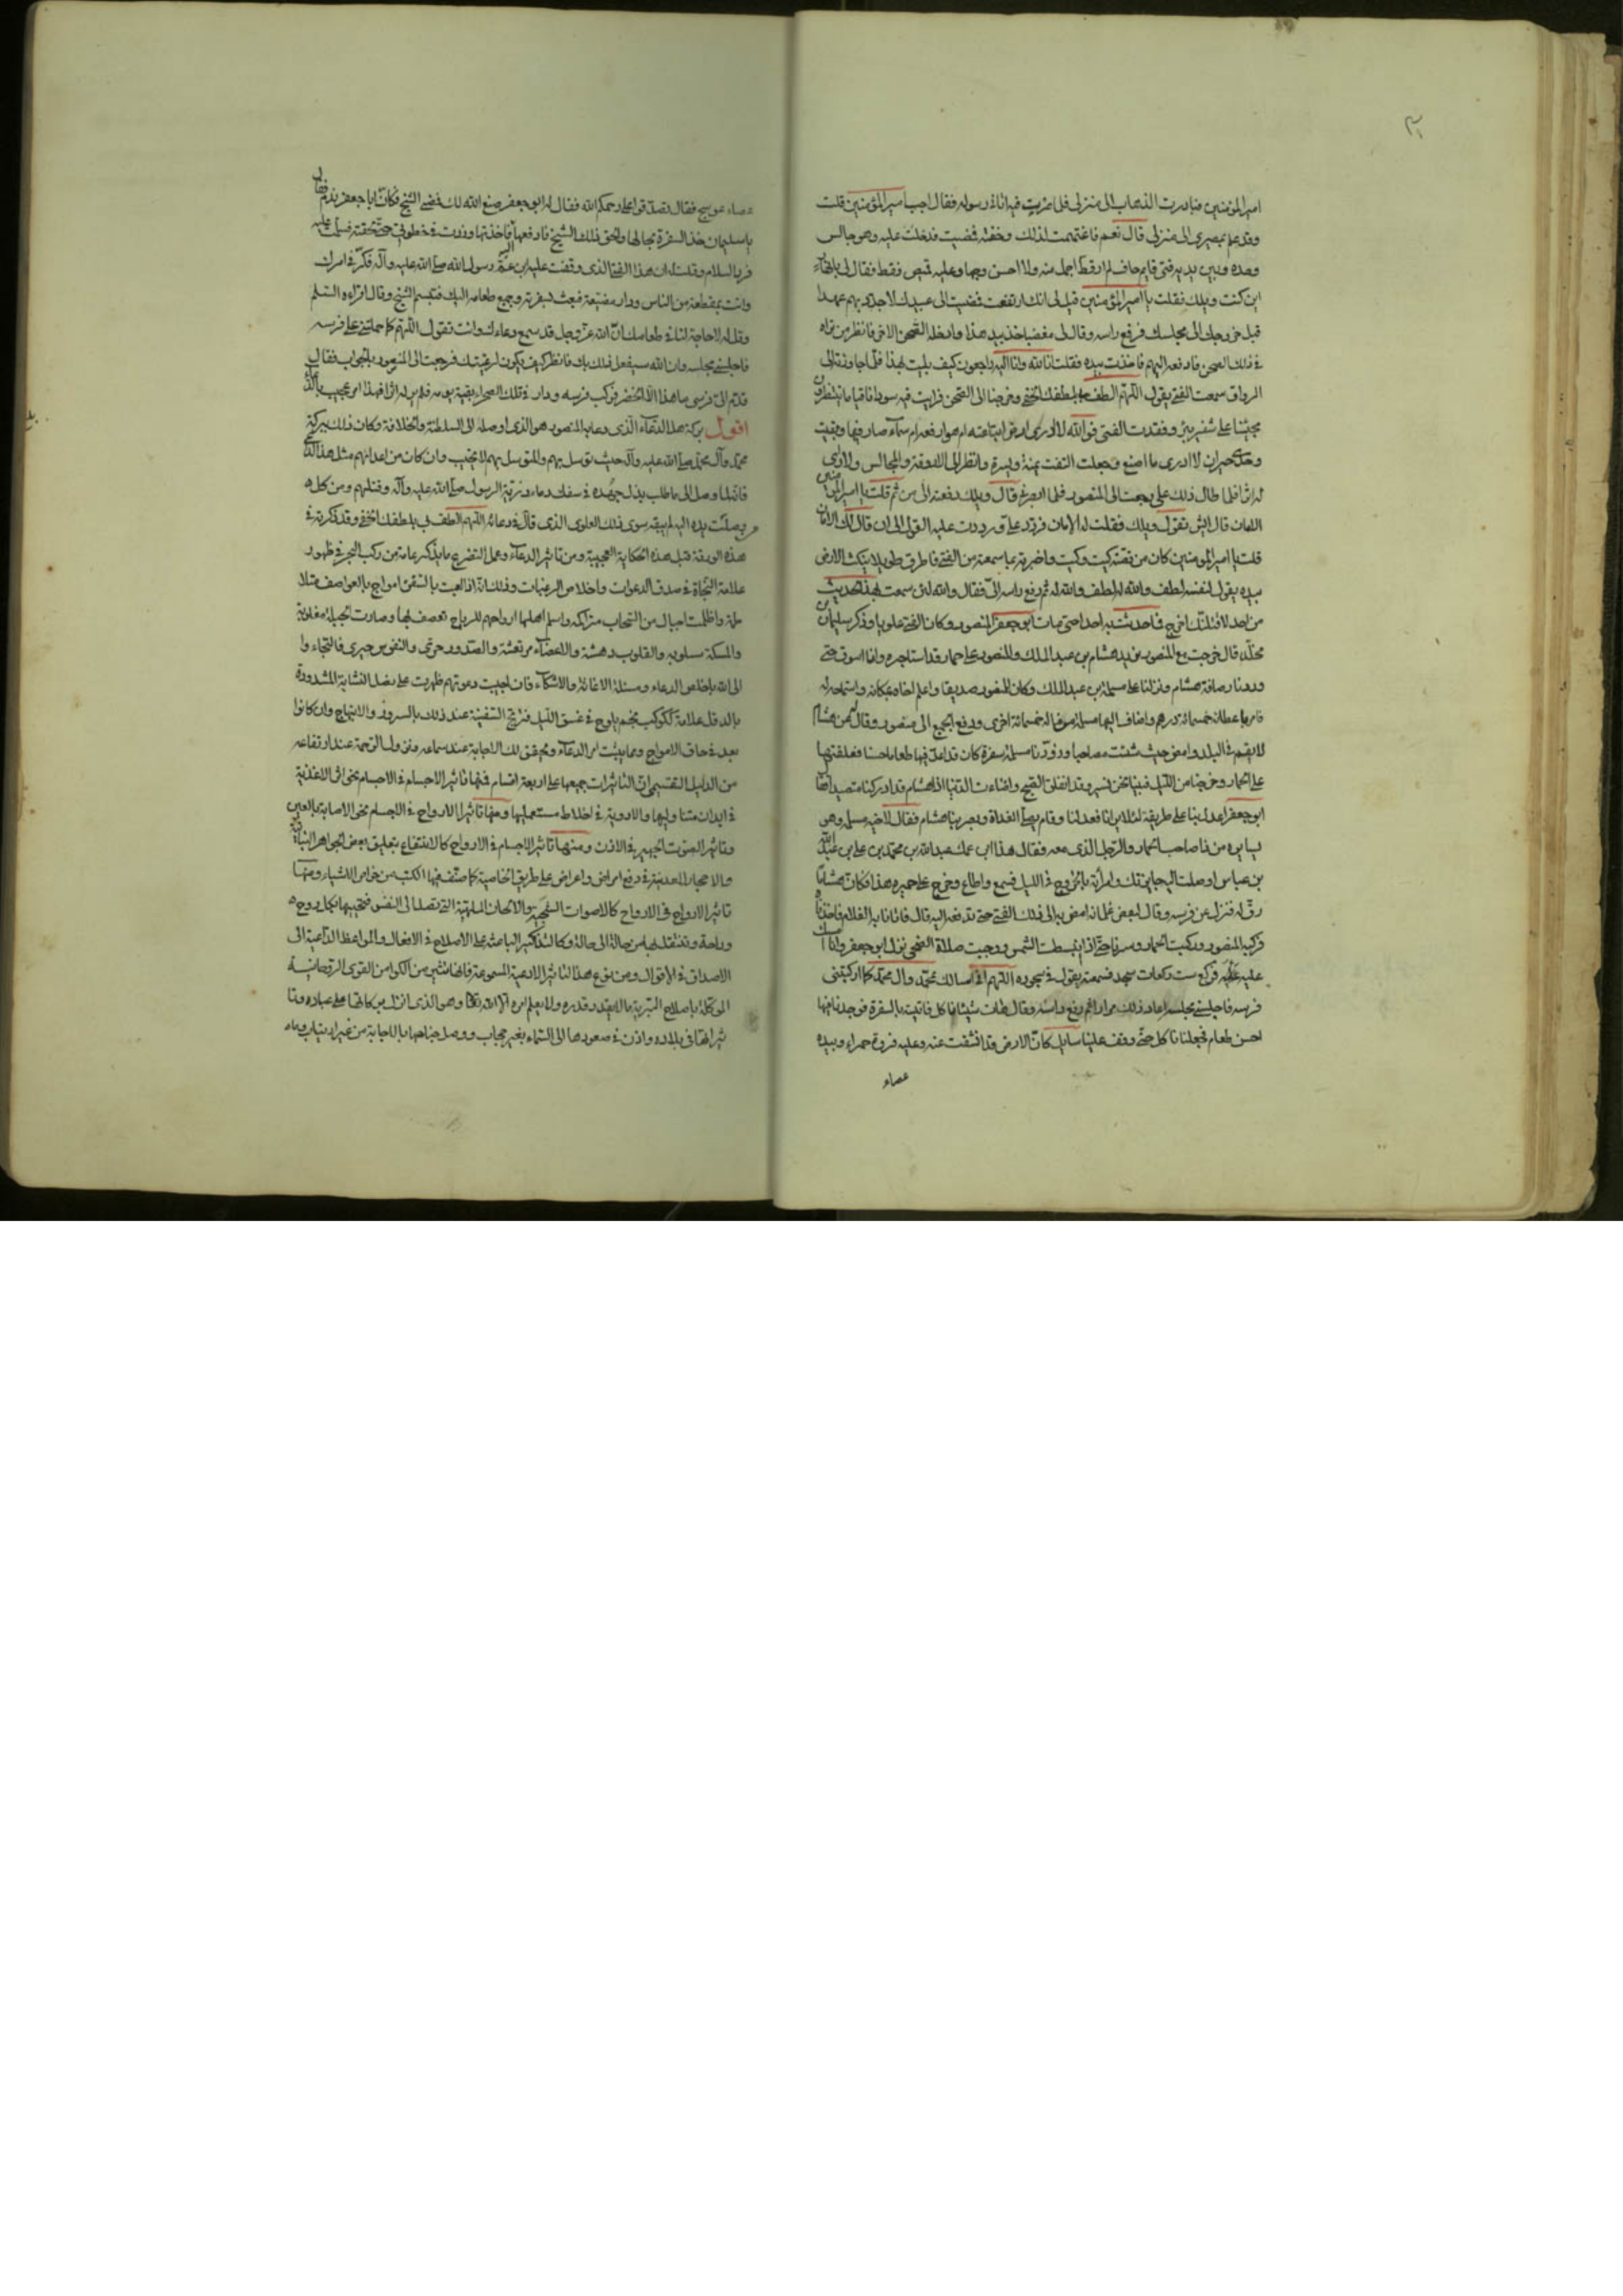 ٣١
امير المؤمنين فبادرت الذهاب الى منزلى فلما ضربت فيه اتانى رسوله فقال اجب امير المؤمنين قلت
وقد علم بمصيرى الى منزلى قال نعم فاغتممت لذلك وخفته فمضيت فدخلت عليه وهو جالس
وحده وبين يديه فتى قايم حاف لم ار قط اجمل منه ولا احسن وجها وعليه قميص فقط فقال لى
اين كنت ويلك فقلت يا امير المؤمنين قيل لى انك ارتفعت فمضيت الى عيالك لاجدد بهم عهدا
قبل خروجك الى مجلسك فرفع راسه وقال لى مغضبا خذ بيد هذا وادخله الصحن الاخر فانظر من تراه
فى ذلك الصحن فادفعه اليهم فاخذت بيده فقلت انا لله وانا اليه راجعون كيف بليت بهذا فلما جاوزنا الى
الرواق سمعت الفتى يقول اللهم الطف بلطفك الخفى وخرجنا الى الصحن فرايت فيه سودانا قياما ينتظرون
مجيئنا على شفير بئر وفقدت الفتى فوالله لا ادرى ارض ابتلعته ام هوا رفعه ام سماء صار فيها وبقيت
وحدى حيران لا ادرى ما اصنع وجعلت التفت يمنة ويسرة وانظر الى الاروقة والمجالس ولا ارى
له اثرا فلما طال ذلك على رجعت الى المنصور فلما ابصرنى قال ويلك دفعته الى من ثم قلت يا امير المؤمنين
الامان قال ايش تقول ويلك فقلت له الامان فردد على ورددت عليه القول الى ان قال لك الامان
قلت يا امير المؤمنين كان من قصته كيت وكيت واخبرته بما سمعته من الفتى فاطرق طويلا ينكث الارض
بيده يقول لنفسه لطف والله له لطف والله له ثم رفع راسه الىّ فقال والله لئن سمعت بهذا الحديث
من احد لاقتلنّك اخرج فما حدثت به احدا حتى مات ابو جعفر المنصور وكان الفتى علويا وذكر سليمان
مخلّد قال خرجت مع المنصور نريد هشام بن عبد الملك والمنصور على حمار قد استاجره وانا اسوق حتى
وردنا رصافة هشام ونزلنا على مسلمة بن عبد الملك وكان للمنصور صديقا واعلم اخاه بمكانه واستماحه له
فامر باعطائه خمسمائة درهم واضاف اليها مسلمة من ماله خمسمائة اخرى ودفع الجميع الى منصور وقال
لا يقيم فى البلد وامض حيث شئت مصاحبا وزوّدنا مسلمة سفرة كان قد اعدّ فيها طعاما حسنا فعلقتها
على الحمار وخرجنا من الليل فبينا نحن نسير وقد انفلق الصبح واضاءت الدنيا اذا هشام قد ادركنا متصيدا فقال
ابو جعفر اعدل بنا على طريقه لئلا يرانا فعدلنا وقام يصلى الغداة وبصر بنا هشام فقال لاخيه مسلمة وهو
يسايره من ذا صاحب الحمار والرجل الذى معه فقال هذا ابن عمك عبد الله بن محمد بن على بن عبد الله
بن عباس اوصلت اليه جايزتك وامرته بالخروج فى الليل فسمع واطاع وخرج على حميره هذا فكانّ هشاما
رقّ له فنزل عن فرسه وقال لبعض غلمانه امض به الى ذلك الفتى حتى تدفعه اليه قال فاتانا به الغلام فاخذناه
فركبه المنصور وركبت الحمار وسرنا حتى اذا انبسطت الشمس ووجبت صلاة الضحى نزل ابو جعفر وانا
عليه فركع ست ركعات سجد فسمعته يقول فى سجوده اللهم انى اسالك بمحمد وال محمد كما اركبتنى
فرسه فاجلسنى مجلسه اعاد ذلك مرارا ثم رفع راسه وقال هات شيئا ناكل فاتيته بالسفرة فوجدنا فيها
احسن طعام فجعلنا ناكل حتى وقف علينا سايل كانّ الارض قد انشقت عنه وعليه فروة حمراء وبيده
عصاء
عصاء عوسج فقال تصدقوا على رحمكم الله فقال له ابو جعفر صنع الله لك فمضى الشيخ فكانّ ابا جعفر ندم فقال
يا سليمان خذ السفرة بحالها والحق ذلك الشيخ فادفعها اليه فاخذتها وزدت فى خطوتى حتى لحقته فسلمت عليه
فرد السلام وقلت له ان هذا الفتى الذى وقفت عليه ابن عمّ رسول الله صلى الله عليه وآله فكّر فى امرك
وانت بمقطعة من الناس ودار مضيّعة فبعث بسفرته وجميع طعامه اليك فتبسم الشيخ وقال اقراءه السلم
وقل له لا حاجة لنا فى طعامك انّ الله عزّ وجل قد سمع دعاءك وانت تقول اللهم كما حملتنى على فرسه
فاجلسنى مجلسه وان الله سيفعل ذلك بك فانظر كيف تكون لرعيتك فرجعت الى المنصور بالجواب فقال
قدّم الىّ فرسى ما هذا الّا الخضر فركب فرسه ودار فى تلك الصحراء بقية يومه فلم ير له اثرا فهذا امر عجيب
اقول بركة هذا الدعاء الذى دعا به المنصور هو الذى اوصله الى السلطنة والخلافة وكان ذلك ببركة
محمد وآل محمد صلى الله عليه وآله حيث توسل بهم والمتوسل بهم لا يخيب وان كان من اعدائهم مثل هذا
فانه لما وصل الى ما طلب بذل جهده فى سفك دماء ذرية الرسول صلى الله عليه وآله وقتلهم ومن كل
وصلت يده اليه لم يبقه سوى ذلك العلوى الذى قال فى دعائه اللهم الطف بى بلطفك الخفى وقد ذكرته فى
هذه الورقة قبل هذه الحكاية العجيبة ومن تاثير الدعاء وعمل التضرع ما يذكره عامة من ركب البحر فى ظهور
علامة النجاة فى صدق الدعوات واخلاص الرغبات وذلك انه اذا لعبت بالسفن امواج بالعواصف متلا
طمة واظلت اجبال من السحاب متراكمة واسلم اهلها ارواحهم للرياح تعصف بها وصارت الحيلة مغلوبة
والمسكة مسلوبة والقلوب دهشة والاعضاء مرتعشة والصدور حرقى والنفوس حيرى فالتجاءوا
الى الله باخلاص الدعاء ومسئلة الاغاثة والاشكاء فان اجيبت دعوتهم ظهرت على نصل النشابة المشدودة
بالدقل علامة كالكوكب يخيم يلوح فى غسق الليل فترتج السفينة عند ذلك بالسرور والابتهاج وان كانوا
بعد فى حاق الامواج ومما يثبت امر الدعاء ويحقق لك الاجابة عند سماعه ونزول الرحمة عند ارتفاعه
من الدليل التقسيمى انّ التاثيرات جميعها على اربعة اقسام فمنها تاثير الاجسام فى الاجسام نحو اثر الاغذية
فى ابدان متناوليها والادوية فى اخلاط مستعمليها ومنها تاثير الارواح فى الاجسام نحو الاصابة بالعين
وتاثير الصوت الجهير فى الاذن ومنها تاثير الاجسام فى الارواح كالانتفاع بتعليق بعض الجواهر النباتية
والاحجار المعدنية فى دفع امراض واعراض على طريق الخاصية كما صنّف فيها الكتب من خواص الاشياء ومنها
تاثير الارواح فى الارواح كالاصوات الشجية والالحان الملهية التى تصل الى النفس فتحييها بكل روح
وراحة وتنتقل بها من حالة الى حالة وكالتذكير الباعث على الاصلاح فى الافعال والمواعظ الداعية الى
الاصداق فى الاقوال ومن نوع هذا التاثير الادعية المسموعة فانها تثير من الكوامن القوى الروحانية
الموكّلة باصلاح البرية ما لا يقدر قدره ولا يعلم امره الّا الله تعالى وهو الذى انزل بركاتها على عباده وتا
ثيراتها فى بلاده واذن فى صعودها الى السماء بغير حجاب ووصل جناحها بالاجابة من غير ارتياب وما